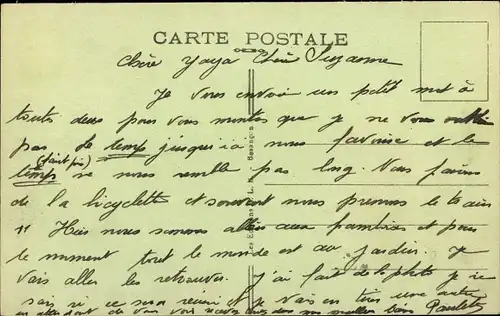 CARTE POSTALE
chère yaya chère Suzanne
Je vous envoi un petit mot à
toute deux pour vous montrer que je ne vous oublie
pas le temps jusqu'ici nous favorise et le
(fait pas)
temps ne nous semble pas long. Nous faisons
de la bicyclette et souvent nous prenons le train
Hier nous sommes allés aux et pour
le moment tout le monde est au jardin. Je
vais aller les retrouver. J'ai fait des photos je ne
sais si ce sera réussi et je vais en tirer une autre
en attendant de vous voir recevez nos meilleurs bons Paulette